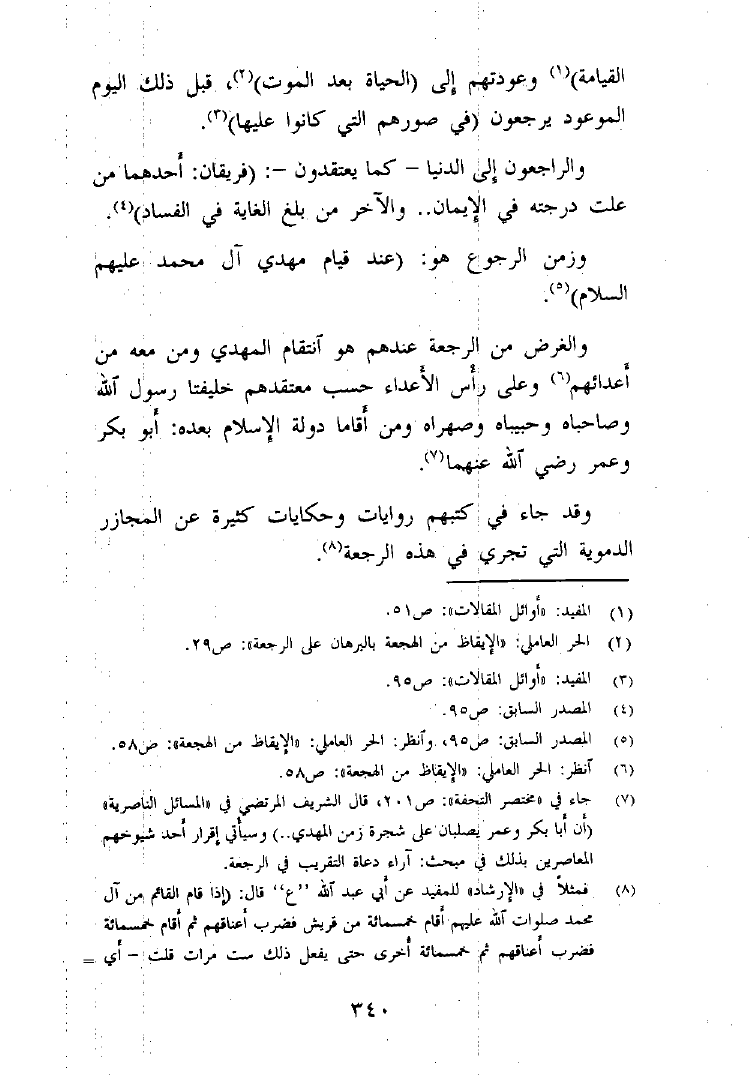 القيامة)(١) وعودتهم إلى (الحياة بعد الموت)(٢)، قبل ذلك اليوم
الموعود يرجعون (في صورهم التي كانوا عليها)(٣).
والراجعون إلى الدنيا - كما يعتقدون -: (فريقان: أحدهما من
علت درجته في الإيمان.. والآخر من بلغ الغاية في الفساد)(٤).
وزمن الرجوع هو: (عند قيام مهدي آل محمد عليهم
السلام)(٥).
والغرض من الرجعة عندهم هو آنتقام المهدي ومن معه من
أعدائهم(٦) وعلى رأس الأعداء حسب معتقدهم خليفتا رسول ٱلله
وصاحباه وحبيباه وصهراه ومن أقاما دولة الإسلام بعده: أبو بكر
وعمر رضي ٱلله عنهما(٧).
وقد جاء في كتبهم روايات وحكايات كثيرة عن المجازر
الدموية التي تجري في هذه الرجعة(٨).
(١) المفيد: «أوائل المقالات»: ص٥١.
(٢) الحر العاملي: «الإيقاظ من الهجعة بالبرهان على الرجعة»: ص٢٩.
(٣) المفيد: «أوائل المقالات»: ص٩٥.
(٤) المصدر السابق: ص٩٥.
(٥) المصدر السابق: ص٩٥، وآنظر: الحر العاملي: «الإيقاظ من الهجعة»: ص٥٨.
(٦) آنظر: الحر العاملي: «الإيقاظ من الهجعة»: ص٥٨.
(٧) جاء في «مختصر التحفة»: ص٢٠١، قال الشريف المرتضي في «المسائل الناصرية»
(أن أبا بكر وعمر يصلبان على شجرة زمن المهدي..) وسيأتي إقرار أحد شيوخهم
المعاصرين بذلك في مبحث: آراء دعاة التقريب في الرجعة.
(٨) فمثلاً في «الإرشاد» للمفيد عن أبي عبد ٱلله ‘‘ع’’ قال: (إذا قام القائم من آل
محمد صلوات ٱلله عليهم أقام خمسمائة من قريش فضرب أعناقهم ثم أقام خمسمائة
فضرب أعناقهم ثم خمسمائة أخرى حتى يفعل ذلك ست مرات قلت - أي =
٣٤٠